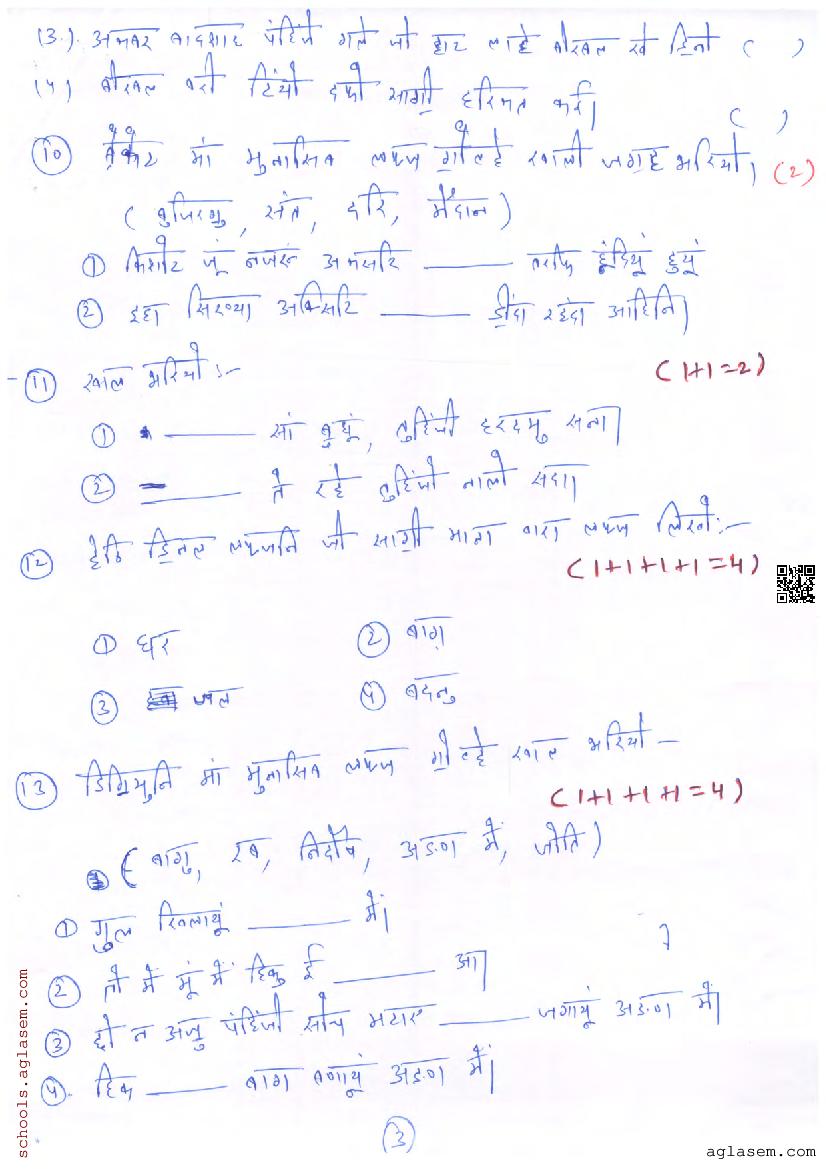 (3.) अकबर बादशाह पंहिंजे गले जो हार लाहे बीरबल खे डिनो ( )
(4) बीरबल वरी टियों दफो सागी हरिकत कई। ( )
(10) ब्रैकेट मां मुनासिब लफ्ज गोल्हे खाली जगह भरियो। (2)
( बुजिरगु, संत, दरि, मैदान )
① किशोर जूं नजरूं अकसरि ______ तरफि हूंदियूं हुयूं
② इहा सिख्या अक्सिरि ______ डींदा रहंदा आहिनि।
(11) खाल भरियो :- (1+1=2)
① ______ सां बुधूं, तुहिंजी हरदमु सना।
② ______ ते रहे तुहिंजो नालो सदा।
(12) हेठि डिनल लफ्जनि जी सागी माना वारा लफ्ज लिखो:-
(1+1+1+1=4)
① घर ② बाग़
③ जल ④ बदनु
(13) डिंगियुनि मां मुनासिब लफ्ज गोल्हे खाल भरियो —
(1+1+1+1=4)
(बागु, रब, निर्दोष, अङण में, जोति)
① गुल खिलायूं ______ में।
② तो में मूं में हिकु ई ______ आ।
③ छो न अजु पंहिंजी सोच मटाए ______ जगायूं अङण में।
④ हिक ______ बाग बणायूं अङण में।
(3)
schools.aglasem.com
aglasem.com